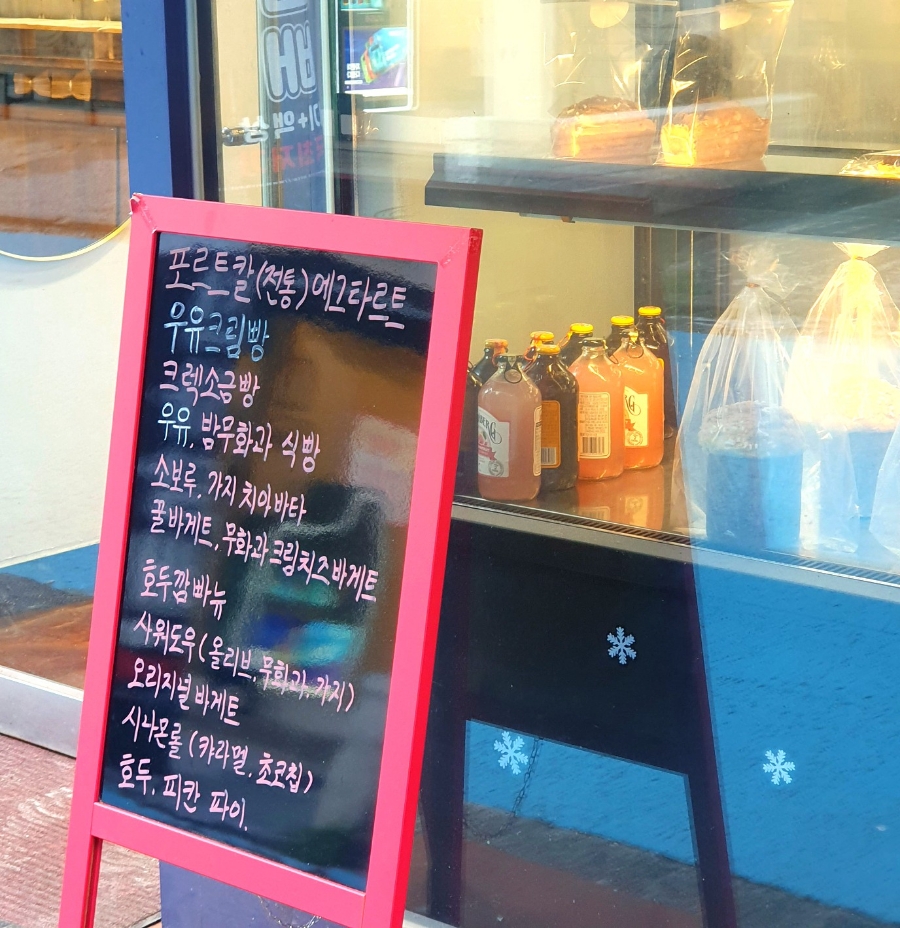 포르트칼(전통)에그타르트
우유크림빵
크렉소금빵
우유, 밤무화과 식빵
소보루, 가지치아바타
꿀바게트, 무화과크림치즈바게트
호두깜빠뉴
사워도우(올리브, 무화과, 가지)
오리지널 바게트
시나몬롤(캬라멜, 초코칩)
호두, 피칸 파이.